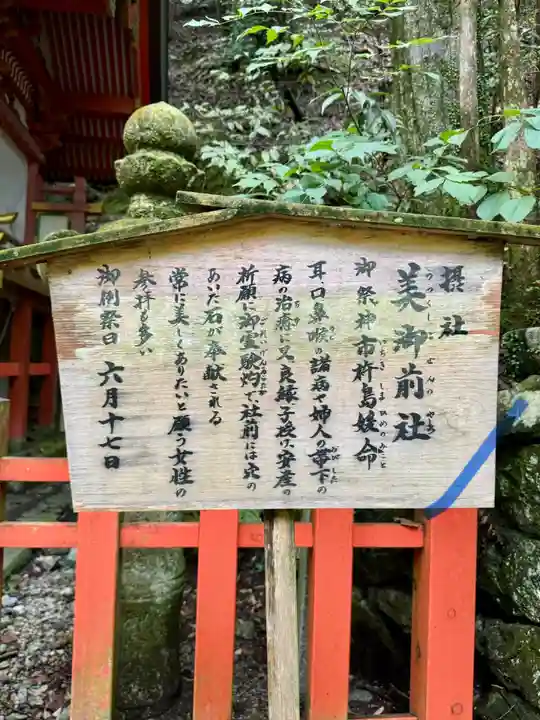 摂社
美御前社
御祭神 市杵島姫命
耳・口・鼻・喉の諸病や婦人の帯下の
病の治療に又良縁子授け安産の
祈願に御霊験灼で社前には穴の
あいた石が奉献される
常に美しくありたいと願う女性の
参拝も多い
御例祭日 六月十七日